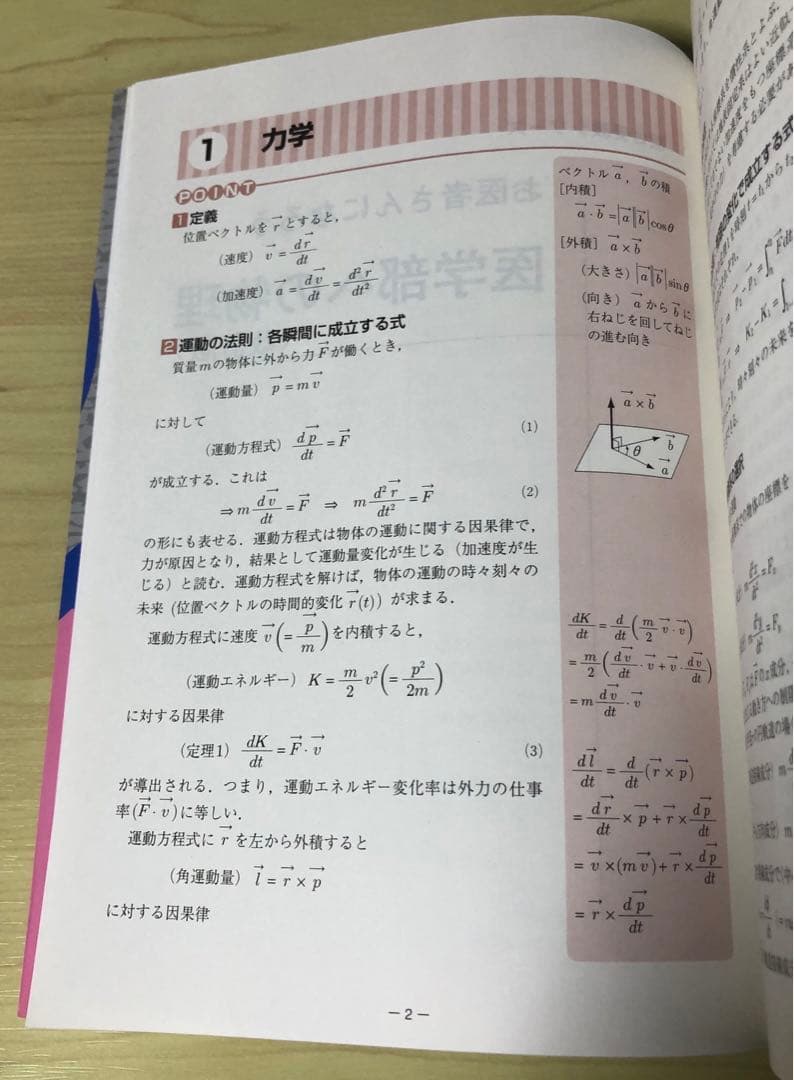 1 力学
POINT
1 定義
位置ベクトルを $\vec{r}$ とすると，
（速度） $\vec{v}=\frac{d\vec{r}}{dt}$
（加速度） $\vec{a}=\frac{d\vec{v}}{dt}=\frac{d^2\vec{r}}{dt^2}$
2 運動の法則：各瞬間に成立する式
質量mの物体に外から力 $\vec{F}$ が働くとき，
（運動量） $\vec{p}=m\vec{v}$
に対して
（運動方程式） $\frac{d\vec{p}}{dt}=\vec{F}$ (1)
が成立する．これは
$\Rightarrow m\frac{d\vec{v}}{dt}=\vec{F}$ $\Rightarrow$ $m\frac{d^2\vec{r}}{dt^2}=\vec{F}$ (2)
の形にも表せる．運動方程式は物体の運動に関する因果律で，
力が原因となり，結果として運動量変化が生じる（加速度が生
じる）と読む．運動方程式を解けば，物体の運動の時々刻々の
未来（位置ベクトルの時間的変化 $\vec{r}(t)$）が求まる．
運動方程式に速度 $\vec{v}\left(=\frac{\vec{p}}{m}\right)$ を内積すると，
（運動エネルギー） $K=\frac{m}{2}v^2\left(=\frac{p^2}{2m}\right)$
に対する因果律
（定理1） $\frac{dK}{dt}=\vec{F}\cdot\vec{v}$ (3)
が導出される．つまり，運動エネルギー変化率は外力の仕事
率($\vec{F}\cdot\vec{v}$)に等しい．
運動方程式に $\vec{r}$ を左から外積すると
（角運動量） $\vec{l}=\vec{r}\times\vec{p}$
に対する因果律
ベクトル $\vec{a}$，$\vec{b}$ の積
［内積］
$\vec{a}\cdot\vec{b}=|\vec{a}||\vec{b}|\cos\theta$
［外積］ $\vec{a}\times\vec{b}$
（大きさ） $|\vec{a}||\vec{b}|\sin\theta$
（向き） $\vec{a}$ から $\vec{b}$ に
右ねじを回してねじ
の進む向き
$\vec{a}\times\vec{b}$
$\vec{b}$
θ
$\vec{a}$
$\frac{dK}{dt}=\frac{d}{dt}\left(\frac{m}{2}\vec{v}\cdot\vec{v}\right)$
$=\frac{m}{2}\left(\frac{d\vec{v}}{dt}\cdot\vec{v}+\vec{v}\cdot\frac{d\vec{v}}{dt}\right)$
$=m\frac{d\vec{v}}{dt}\cdot\vec{v}$
$\frac{d\vec{l}}{dt}=\frac{d}{dt}(\vec{r}\times\vec{p})$
$=\frac{d\vec{r}}{dt}\times\vec{p}+\vec{r}\times\frac{d\vec{p}}{dt}$
$=\vec{v}\times(m\vec{v})+\vec{r}\times\frac{d\vec{p}}{dt}$
$=\vec{r}\times\frac{d\vec{p}}{dt}$
－2－